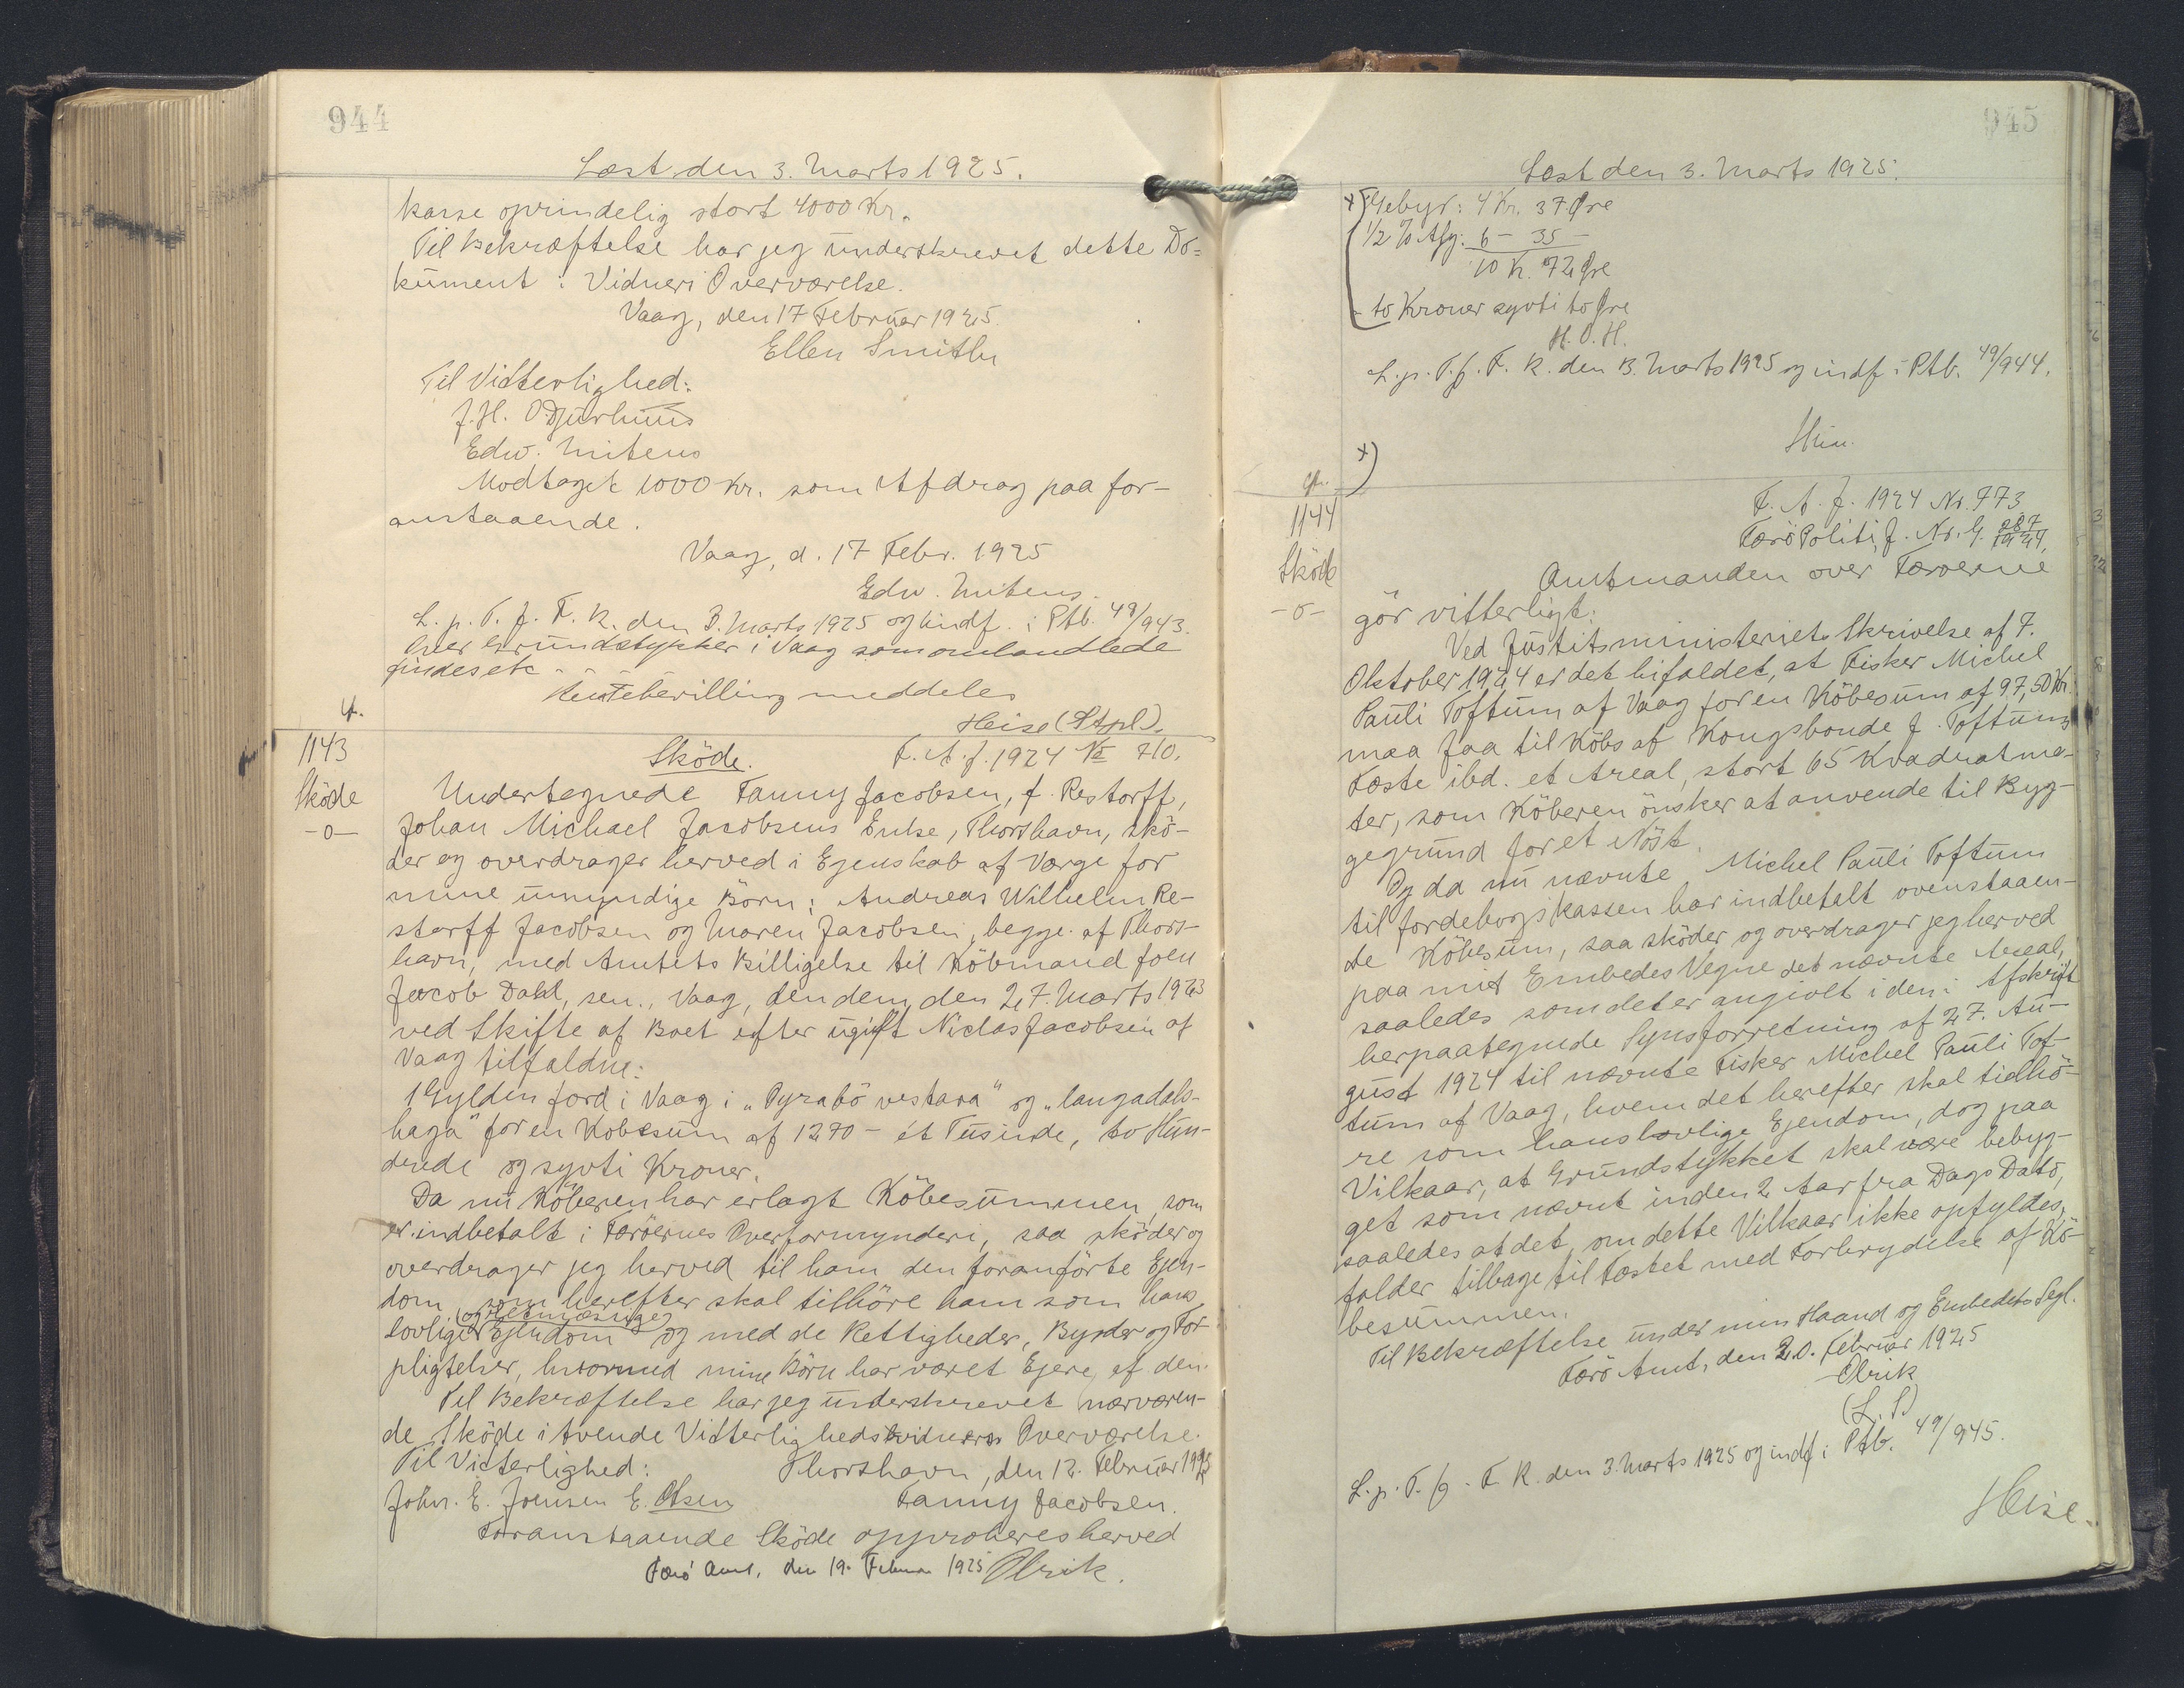 944
Læst den 3. Marts 1925.
kasse oprindelig stort 4000 Kr.
Til Bekræftelse har jeg underskrevet dette Do=
kument i Vidneri Overværelse.
Vaag, den 17 Februar 1925.
Ellen Smith
Til Vitterlighed:
J.H. O. Djurhuus
Edw. Mitens
Modtaget 1000 Kr. som Afdrag paa for-
anstaaende.
Vaag, d. 17 Febr. 1925
Edw. Mitens.
L. p. T. f. F. R. den 3. Marts 1925 og indf. i Ptb. 49/943.
Grundstykker i Vaag som omhandlede
findes etc
meddeles
Heise (Stpl).
1143
Sköde
-o-
Sköde. F. A. J. 1924 № 710.
Undertegnede Fanny Jacobsen, f. Restorff,
Johan Michael Jacobsens Enke, Thorshavn, skö-
der og overdrager herved i Egenskab af Værge for
mine umyndige Börn: Andreas Wilhelm Re-
storff Jacobsen og Maren Jacobsen, begge af Thors-
havn, med Amtets Billigelse til Köbmand Joen
Jacob Dahl, sen., Vaag, den dem, den 27. Marts 1923
ved Skifte af Boet efter ugift Niclas Jacobsen af
Vaag tilfaldne:
1 Gylden Jord i Vaag i "Pyrabö vestara" og "langadals-
haga" for en Köbesum af 1270 - ét Tusinde, to Hun-
drede og syvti Kroner.
Da nu Köberen har erlagt Köbesummen, som
er indbetalt i Færöernes Overformynderi, saa sköder og
overdrager jeg herved til ham den foranförte Ejen-
dom, som herefter skal tilhöre ham som hans
(og retmæssige)
lovlige Ejendom og med de Rettigheder, Byrder og For
pligtelser, hvormed mine Börn har været Ejere af den.
Til Bekræftelse har jeg underskrevet nærværen-
de Sköde i tvende Vitterlighedsvidners Overværelse.
Til Vitterlighed: Thorshavn, den 12. Februar 1925
Johs. E. Joensen E. Olsen Fanny Jacobsen.
Foranstaaende Sköde approberes herved
Færö Amt, den 19. Februar 1925 Olrik.
945
Læst den 3. Marts 1925.
x) Gebyr: 4 Kr. 37 Øre
1/2 % Afg: 6 - 35 -
10 Kr. 72 Øre
- to Kroner syvti to Øre
H. O. H.
L. p. T. f. F. R. den 3. Marts 1925 og indf i Ptb. 49/944.
x)
1144
Sköde
-o-
F. A. J. 1924 Nr. 773.
Færö Politi J. Nr. G. 287/1924.
Amtmanden over Færöerne
gör vitterligt:
Ved Justitsministeriets Skrivelse af 7.
Oktober 1924 er det bifaldet, at Fisker Michel
Pauli Toftum af Vaag for en Köbesum af 97,50 Kr.
maa faa til Köbs af Kongsbonde J. Toftums
Fæste ibd. et Areal, stort 65 Kvadratme-
ter, som Köberen önsker at anvende til Byg-
gegrund for et Nöst.
Og da nu nævnte Michel Pauli Toftum
til Jordebogskassen har indbetalt ovenstaaen-
de Köbesum, saa sköder og overdrager jeg herved
paa mit Embedes Vegne det nævnte Areal,
saaledes som det er angivet i den i Afskrift
herpaategnede Synsforretning af 27. Au-
gust 1924 til nævnte Fisker Michel Pauli Tof-
tum af Vaag, hvem det herefter skal tilhö-
re som hans lovlige Ejendom, dog paa
Vilkaar, at Grundstykket skal være bebyg-
get som nævnt inden 2 Aar fra Dags Dato,
saaledes at det, om dette Vilkaar ikke opfyldes,
falder tilbage til Fæstet med Forbrydelse af Kö-
besummen.
Til Bekræftelse under min Haand og Embedets Segl.
Færö Amt, den 20. Februar 1925
Olrik
(L. S.)
L. p. T. f. F. R. den 3. Marts 1925 og indf i Ptb. 49/945.
Heise.